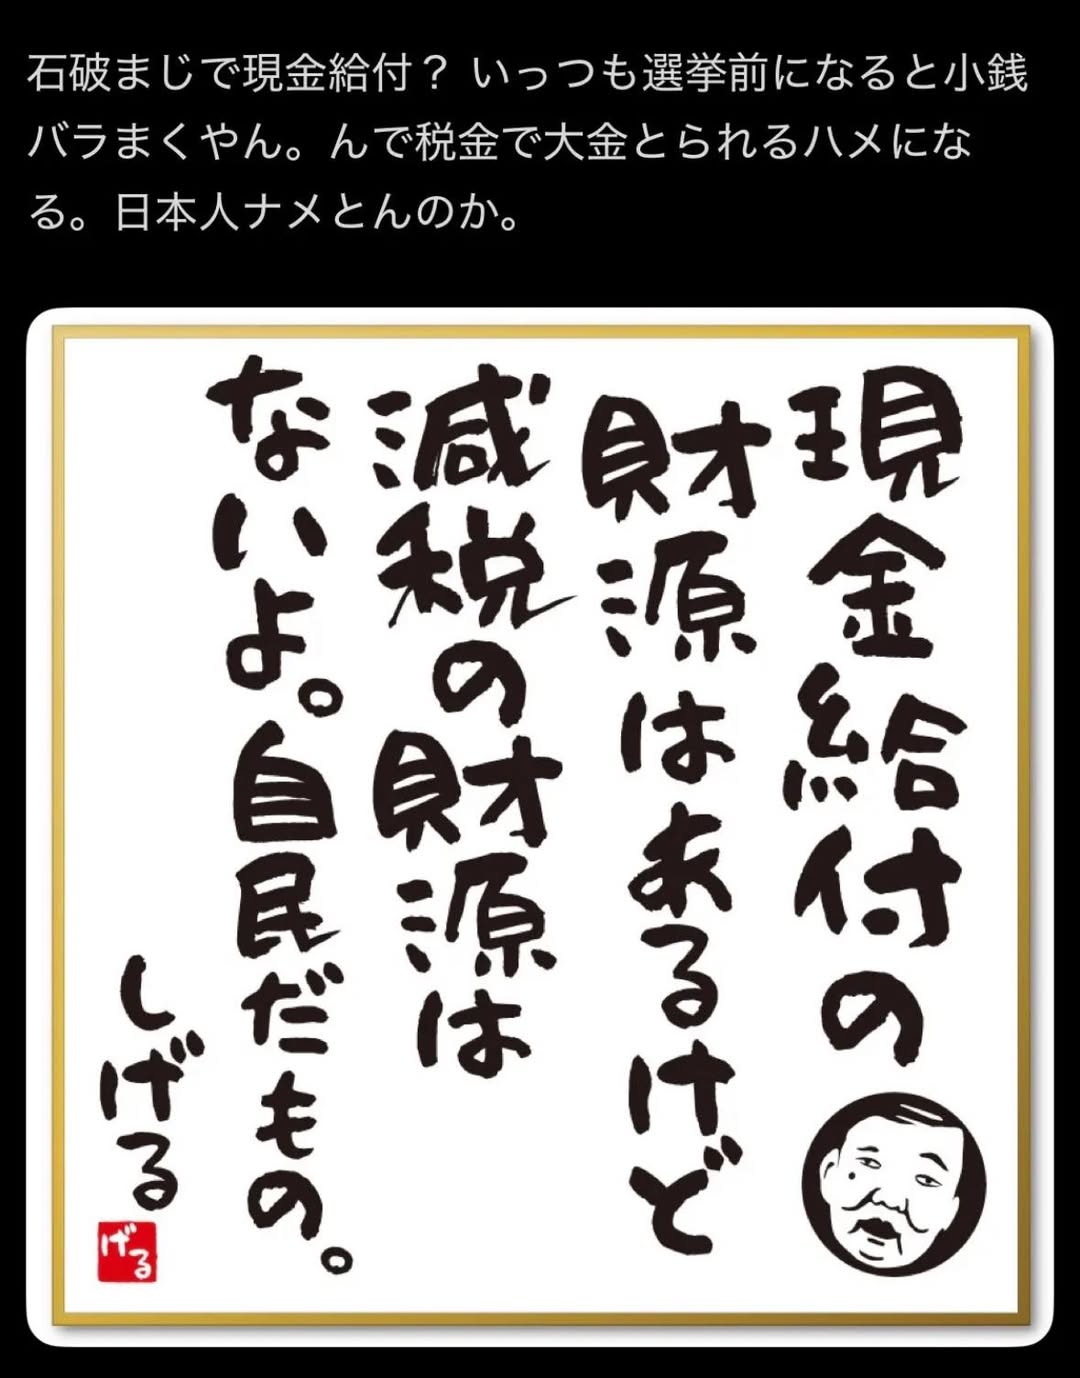 石破まじで現金給付？ いっつも選挙前になると小銭
バラまくやん。んで税金で大金とられるハメにな
る。日本人ナメとんのか。
現金給付の
財源はあるけど
減税の財源は
ないよ。自民だもの。
しげる
げる